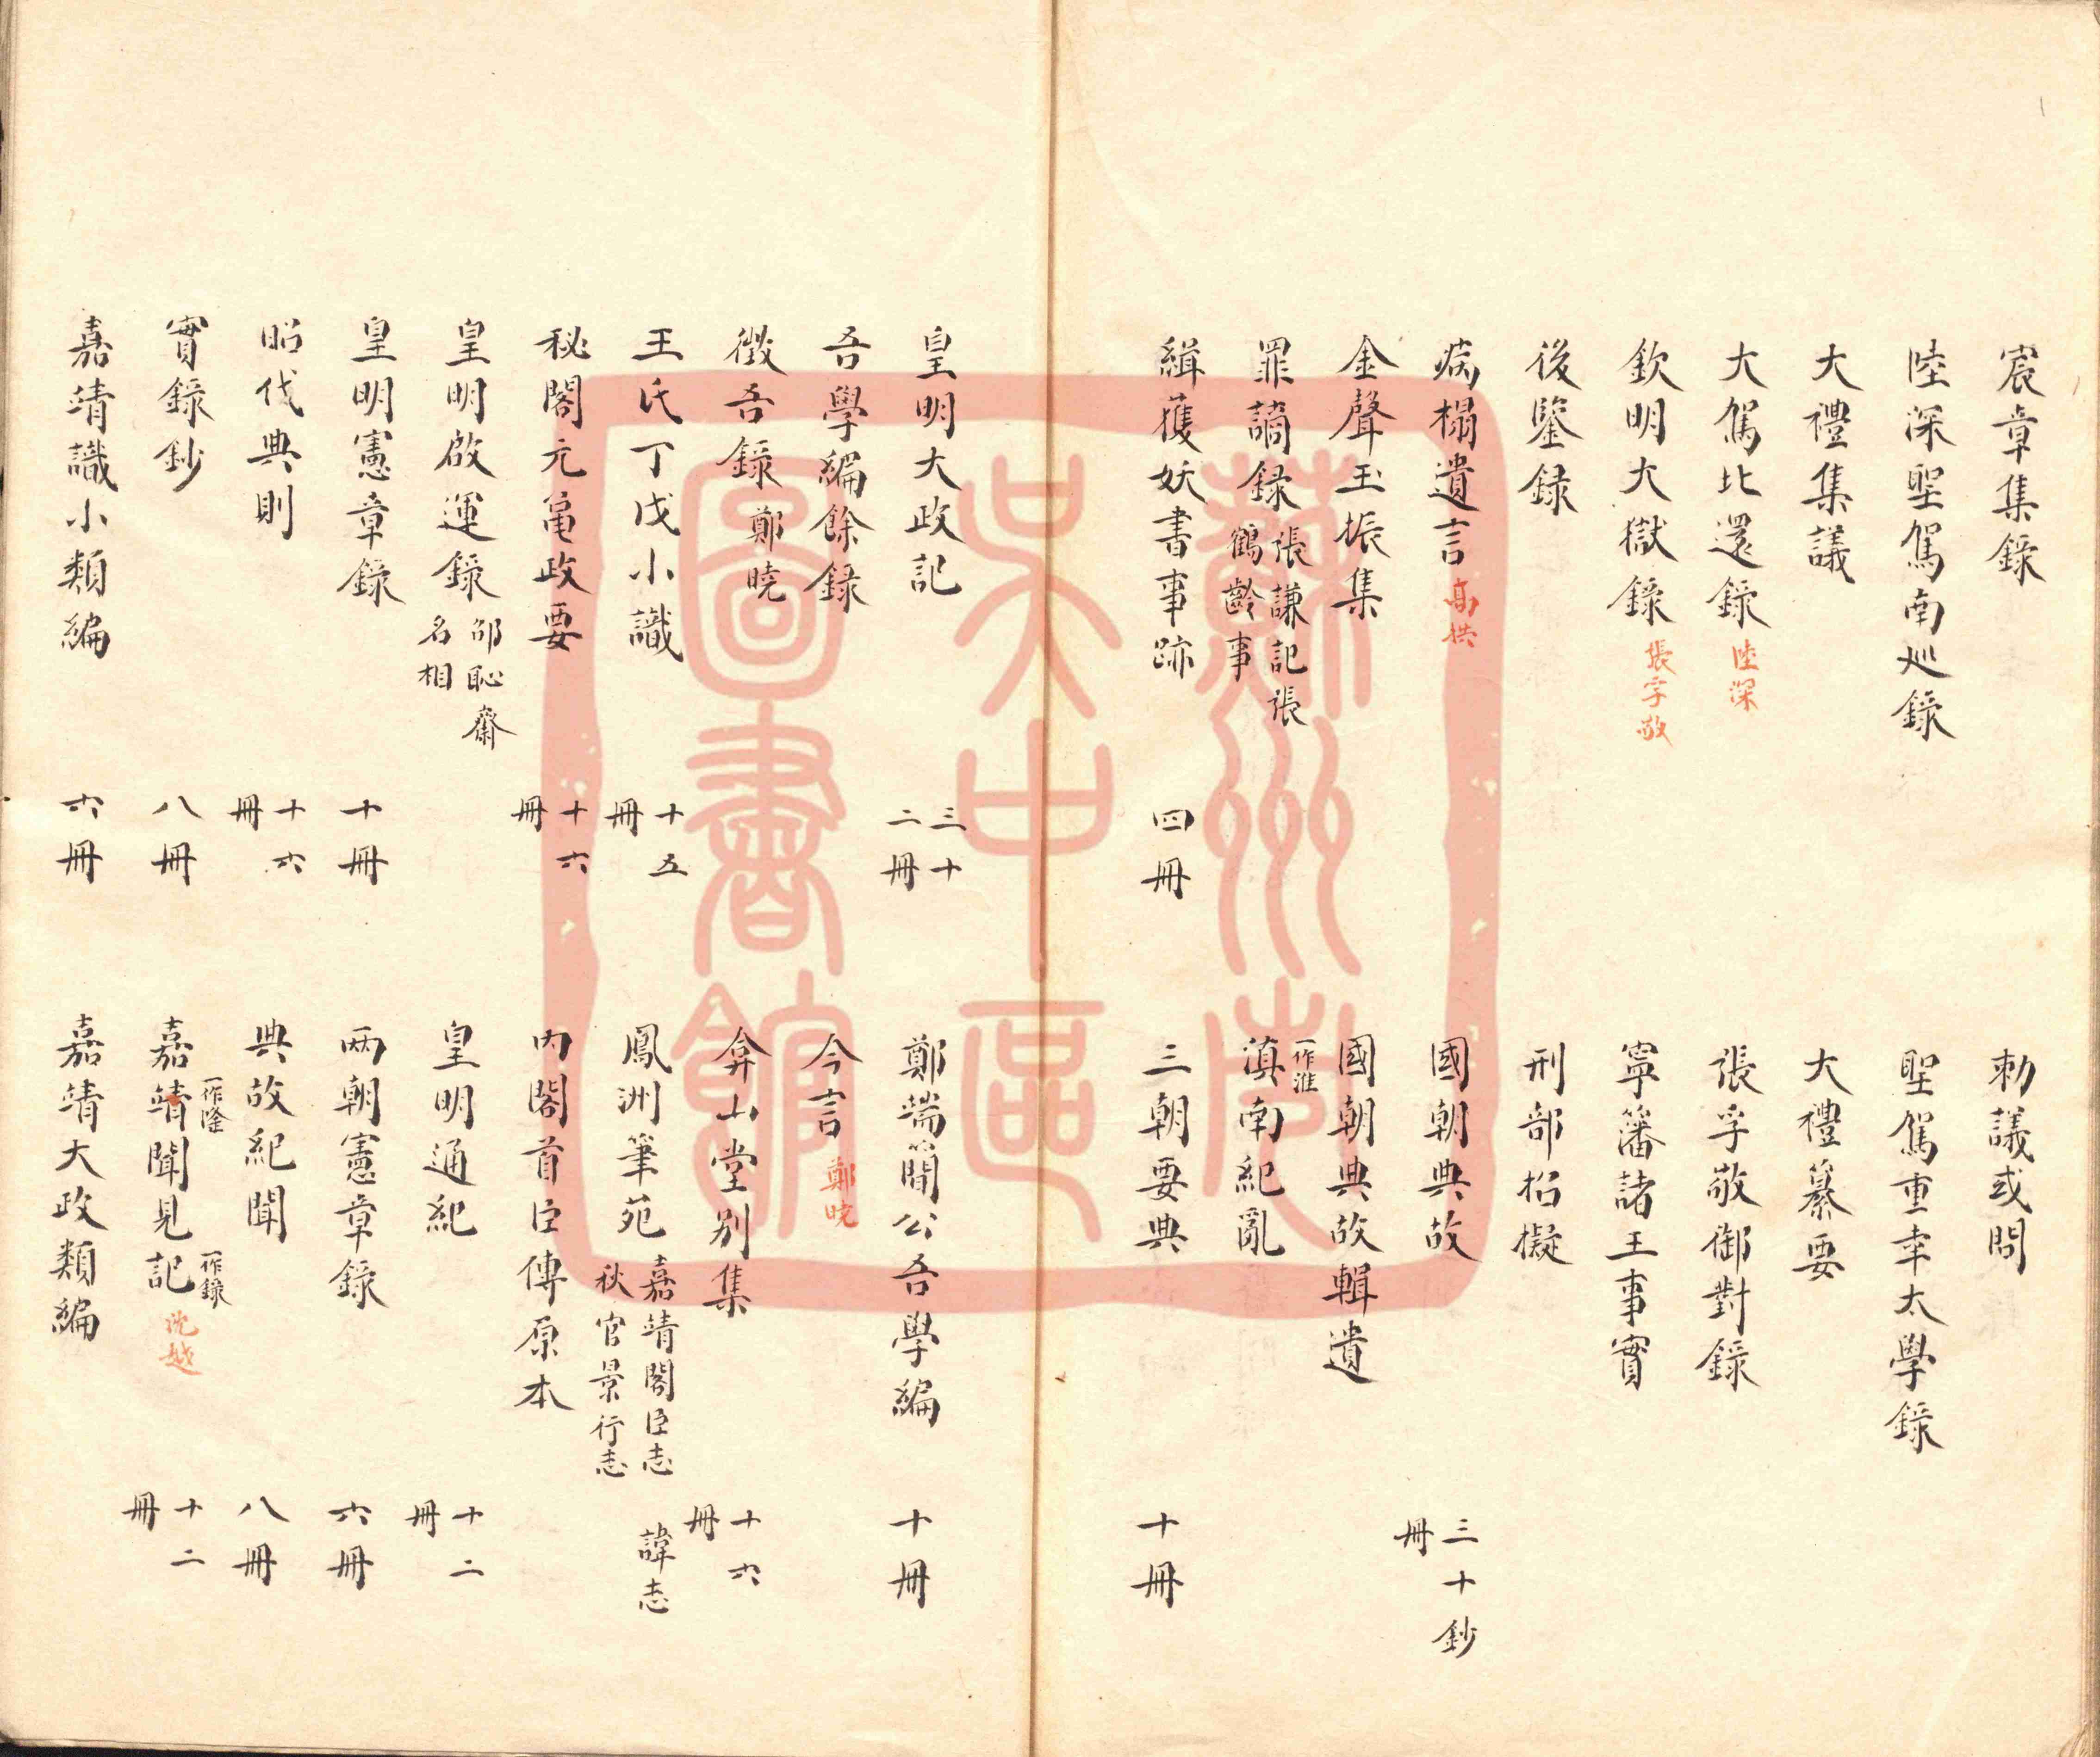 宸章集錄　勅議或問
陸深聖駕南巡錄　聖駕重幸太學錄
大禮集議　大禮纂要
大駕北還錄　陸深　張孚敬御對錄
欽明大獄錄　張孚敬　寧籓諸王事實
後鑒録　刑部招擬
病榻遺言　高拱　國朝典故　三十鈔冊
金聲玉振集　國朝典故輯遺
罪謫録　張謙記張鶴齡事　滇南紀亂　一作淮
緝獲妖書事跡　四冊　三朝要典　十冊
皇明大政記　三十二冊　鄭端簡公吾學編　十冊
吾學編餘録　今言　鄭曉
徵吾錄　鄭曉　弇山堂別集　十六冊
王氏丁戊小識　十五冊　鳳洲筆苑　嘉靖閣臣志　秋官景行志　諱志
秘閣元龜政要　十六冊　內閣首臣傳原本
皇明啟運錄　邵恥齋名相　皇明通紀　十二冊
皇明憲章錄　十冊　兩朝憲章錄　六冊
昭代典則　十六冊　典故紀聞　八冊
實錄鈔　八冊　嘉靖聞見記　一作隆　一作錄　沈越　十二冊
嘉靖識小類編　六冊　嘉靖大政類編
蘇州市
吳中區
圖書館